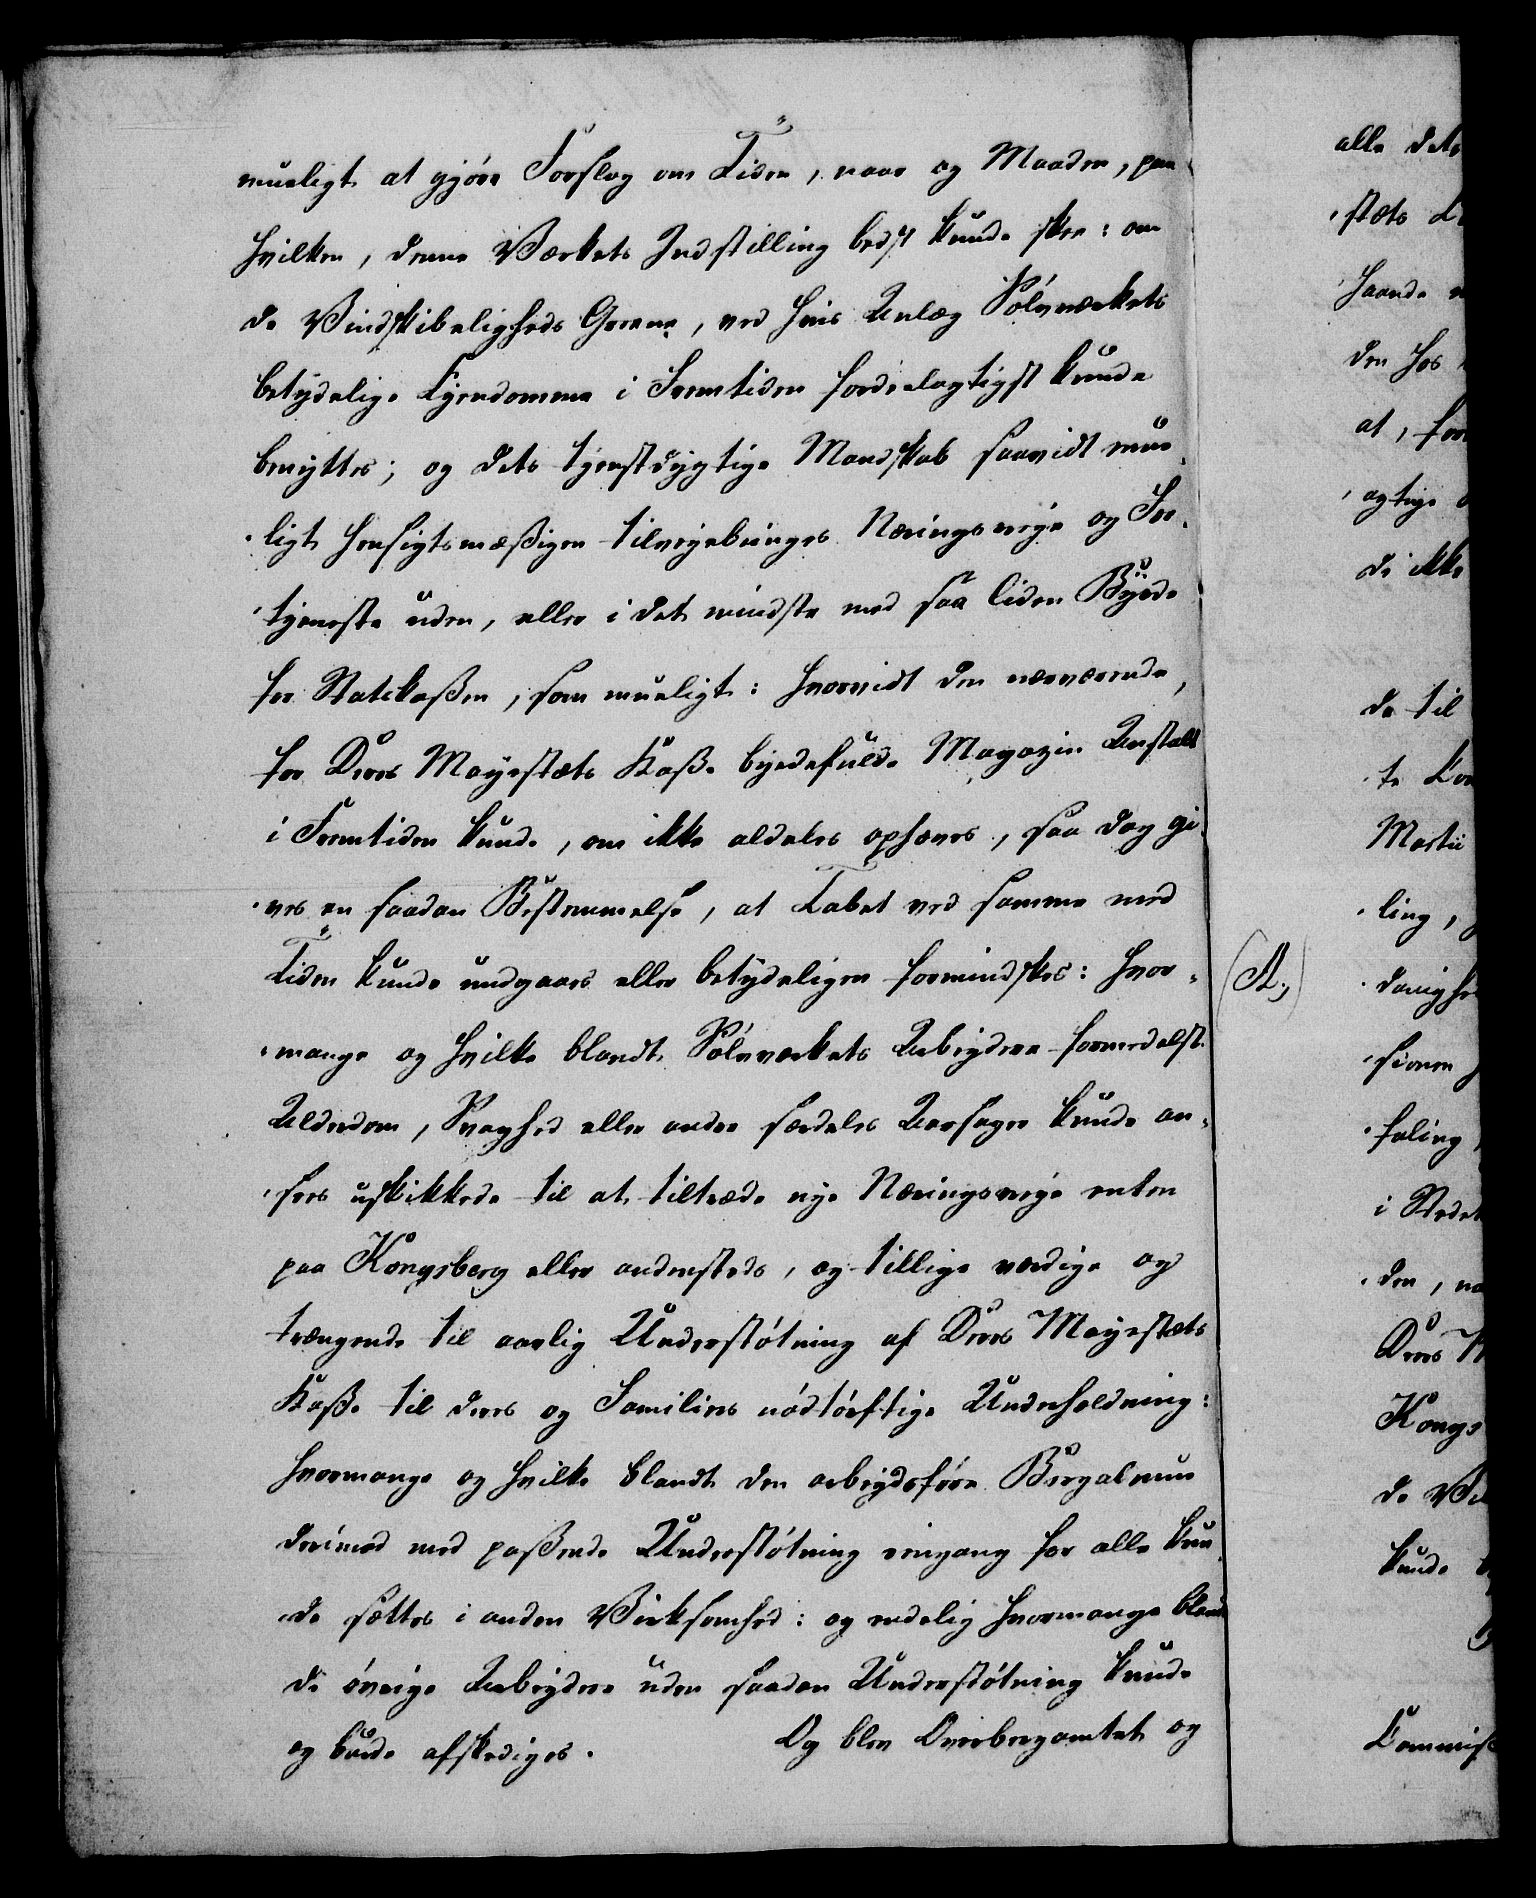 mueligt at gjöre Forslag om Tiden, naar og Maaden, paa
hvilken, denne Værkets Indstilling bedst kunde skee: om
de Vindskibeligheds Greene, ved hvis Anlæg Sölvværkets
betydelige Eyendomme i Fremtiden fordeelagtigst kunde
benyttes; og dets tjenstdygtige Mandskab saavidt mue
ligt hensigtsmæßigen tilvejebringes Næringsveje og For
tjeneste uden, eller i det mindste med saa liden Byrde
for Statskaßen, som mueligt: hvorvidt den nærværende,
for Deres Majestæts Kaße byrdefulde Magazin Anstalt
i Fremtiden kunde, om ikke aldeles ophæves, saa dog gi
ves en saadan Bestemmelse, at Tabet ved samme med
Tiden kunde undgaaes eller betydeligen formindskes: hvor
mange og hvilke blandt Sölvværkets Arbeydere formedelst
Alderdom, Svaghed eller andre særdeles Aarsager kunde an
sees uskikkede til at tiltræde nye Næringsveje enten
paa Kongsberg eller andensteds, og tillige værdige og
trængende til aarlig Understötning af Deres Majestæts
Kaße til deres og Familiens nödtörftige Underholdning:
hvormange og hvilke blandt den arbeydsföre Bergalmue
derimod med paßende Understötning eengang for alle kun
de sættes i anden Virksomhed: og endelig hvormange blandt
de övrige Arbeydere uden saadan Understötning kunde
og burde afskediges. Og blev Overbergamtet og
(A.)
alle dets
stæts
haande
den hos
at, for
agtige
de ikke
de til
te
Martii
ling,
danighe
sionen
faling
i Stedet
den, na
Deres M
Kongs
de
kunde
Commiss